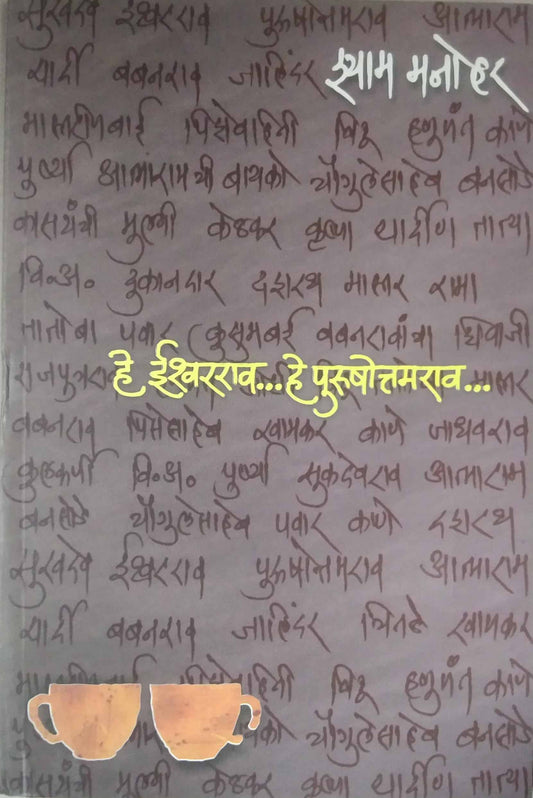 सुखदेव ईश्वरराव पुरूषोत्तमराव आत्माराम
यार्दी बबनराव जालिंदर
श्याम मनोहर
मास्तरीणबाई पिसेवहिनी चिटू हणुमंत काणे
पुष्पी आत्माराम ची बायको चौगुलेसाहेब बनसोडे
मुलगी केळकर कृष्णा यार्दीण तात्या
वि.अ. दुकानदार दशरथ मास्तर रामा
तातोबा पवार कुसुमबाई बबनरावांचा शिवाजी
हे ईश्वरराव... हे पुरुषोत्तमराव...
बबनराव पिसेसाहेब खामकर काणे जाधवराव
कुळकर्णी वि.अ. पुष्पी सुकदेवराव आत्माराम
बनसोडे चौगुलेसाहेब पवार काणे दशरथ
सुखदेव ईश्वरराव पुरूषोत्तमराव आत्माराम
यार्दी बबनराव जालिंदर चितळे खामकर
चिटू हणुमंत काणे
चौगुलेसाहेब बनसोडे
मुलगी केळकर कृष्णा यार्दीण तात्या